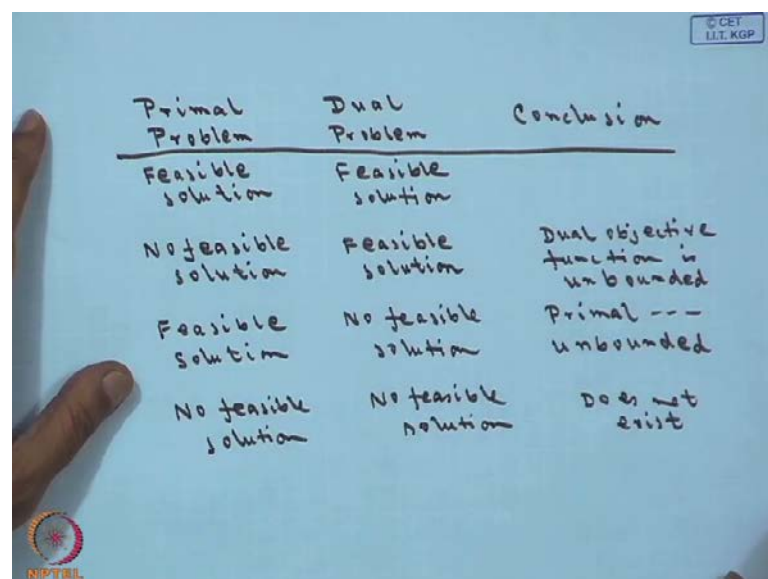 © CET
I.I.T. KGP
Primal Problem Dual Problem Conclusion
Feasible solution Feasible solution
No feasible solution Feasible solution Dual objective function is unbounded
Feasible solution No feasible solution Primal --- unbounded
No feasible solution No feasible solution Does not exist
NPTEL